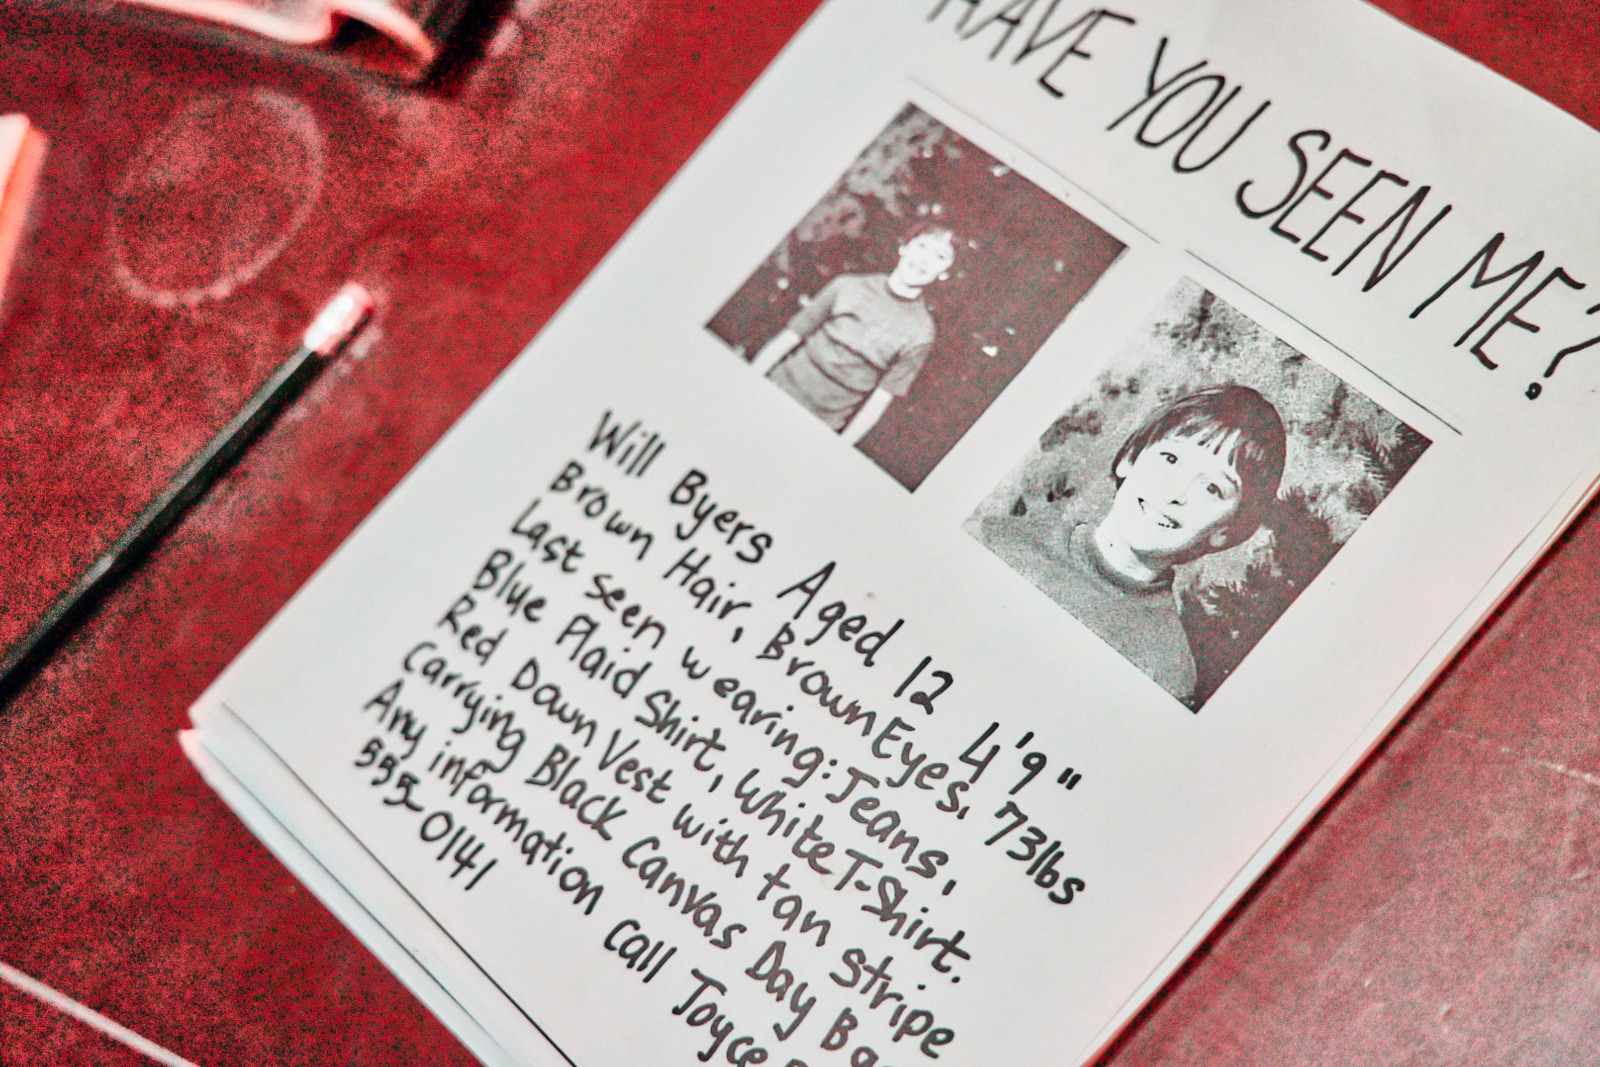 HAVE YOU SEEN ME?
Will Byers Aged 12 4'9"
Brown Hair, Brown Eyes, 73lbs
Last seen wearing: Jeans,
Blue Plaid Shirt, White T-Shirt.
Red Down Vest with tan stripe
Carrying Black Canvas Day
Any information call Joyce
555-0141